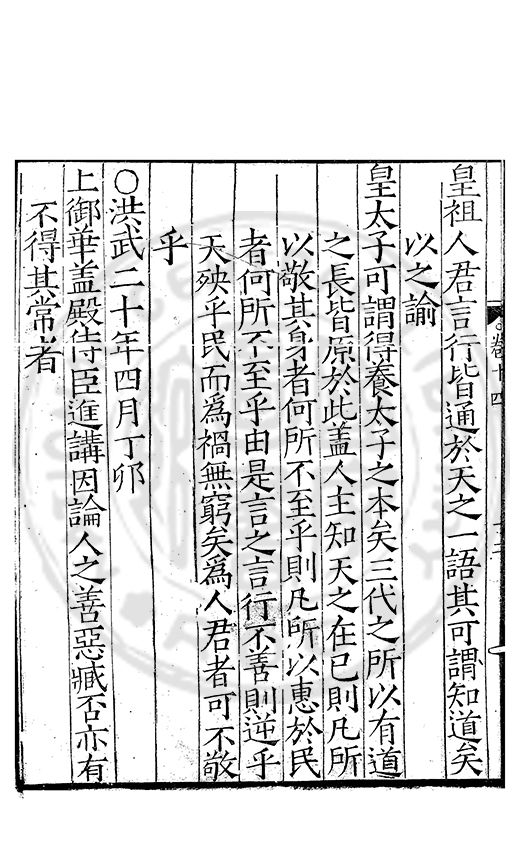 皇祖人君言行皆通於天之一語其可謂知道矣
以之諭
皇太子可謂得養太子之本矣三代之所以有道
之長皆原於此盖人主知天之在已則凡所
以敬其身者何所不至乎則凡所以惠於民
者何所不至乎由是言之言行不善則逆乎
天殃乎民而為禍無窮矣為人君者可不敬
乎
○洪武二十年四月丁卯
上御華盖殿侍臣進講因論人之善惡臧否亦有
不得其常者
卷十四